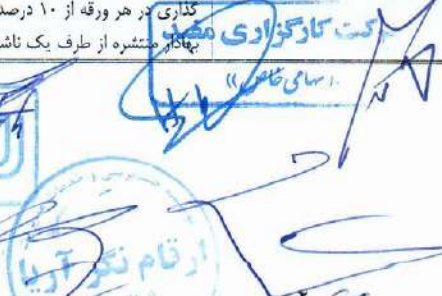 گذاری در هر ورقه از ۱۰ درصد
بهادار منتشره از طرف یک ناشر
شرکت کارگزاری مفید
(( سهامی خاص ))
ارقام نگر آریا